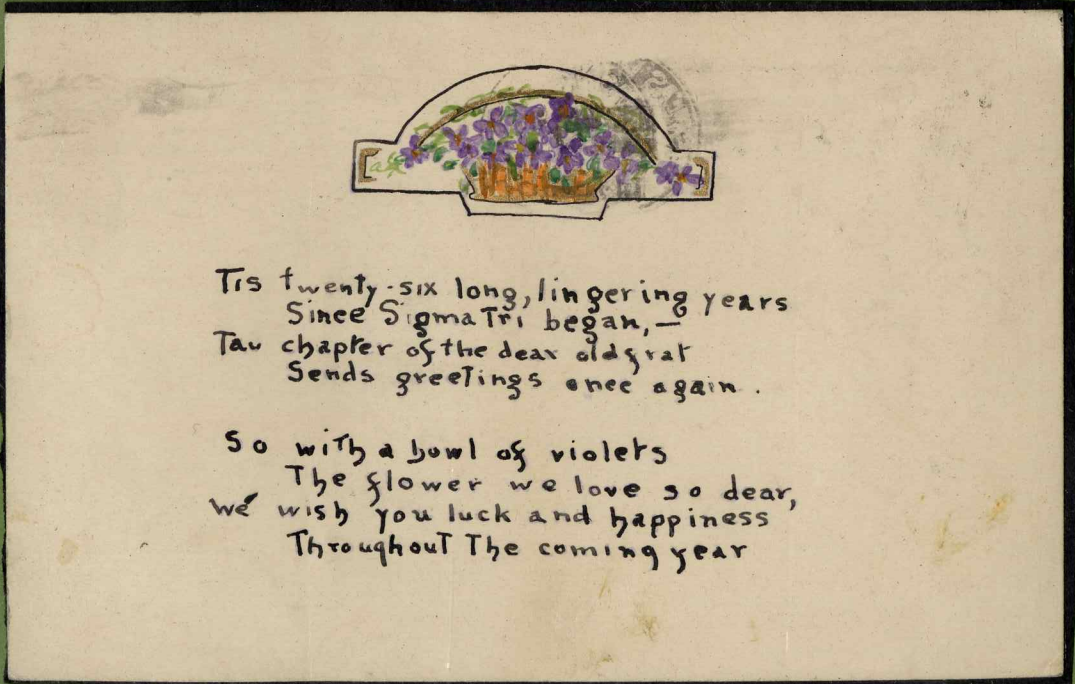 Tis twenty-six long, lingering years
Since Sigma Tri began,—
Tau chapter of the dear old frat
Sends greetings once again.
So with a bowl of violets
The flower we love so dear,
We wish you luck and happiness
Throughout The coming year